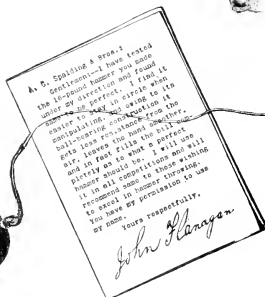 A. G. Spalding & Bros.:
Gentlemen—I have tested
the 16-pound hammer you made
under my direction and found
same perfect. I find it
easier to stay in circle when
manipulating, and owing to its
ball-bearing construction it
gets less resistance from the
air, leaves the hand smoother,
and in fact fills the bill com-
pletely as to what a perfect
hammer should be. I will use
it in all competitions and will
recommend same to those wishing
to excel in hammer throwing.
You have my permission to use
my name.
Yours respectfully,
John Flanagan